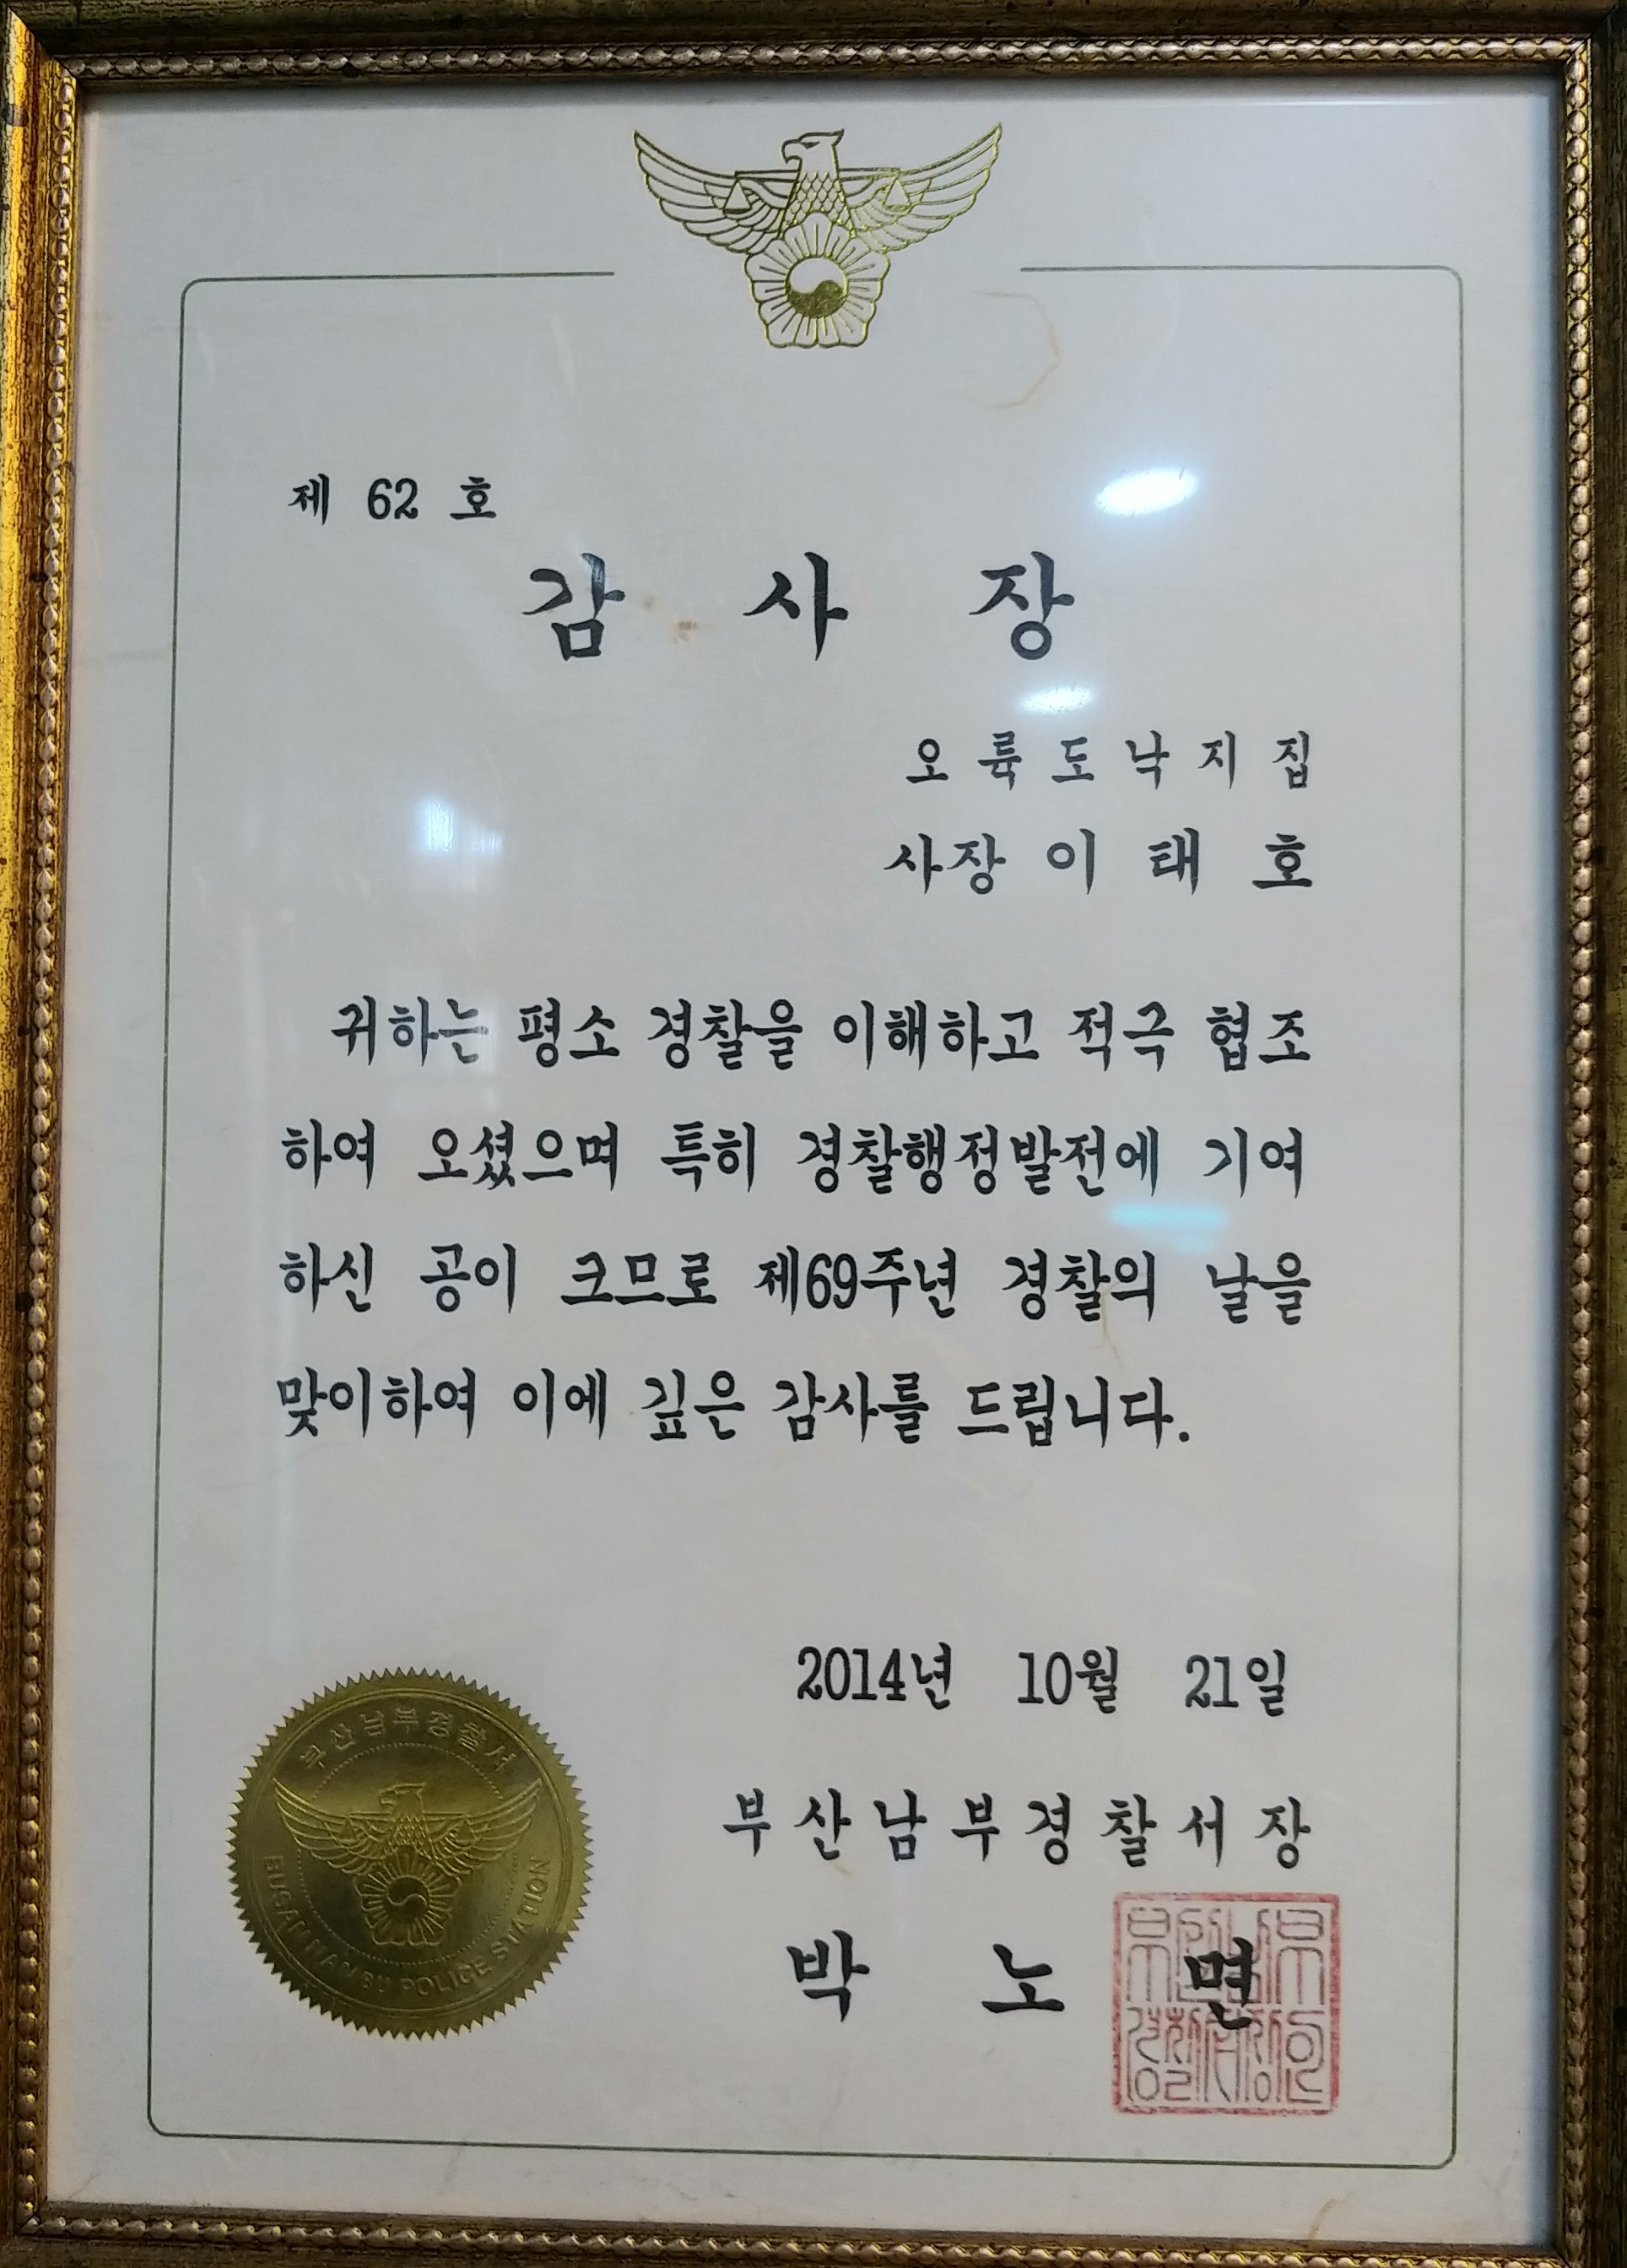 제 62 호
감 사 장
오 륙 도 낙 지 집
사장 이 태 호
귀하는 평소 경찰을 이해하고 적극 협조
하여 오셨으며 특히 경찰행정발전에 기여
하신 공이 크므로 제69주년 경찰의 날을
맞이하여 이에 깊은 감사를 드립니다.
2014년 10월 21일
부 산 남 부 경 찰 서 장
박 노 면
부산남부경찰서
BUSAN NAMBU POLICE STATION